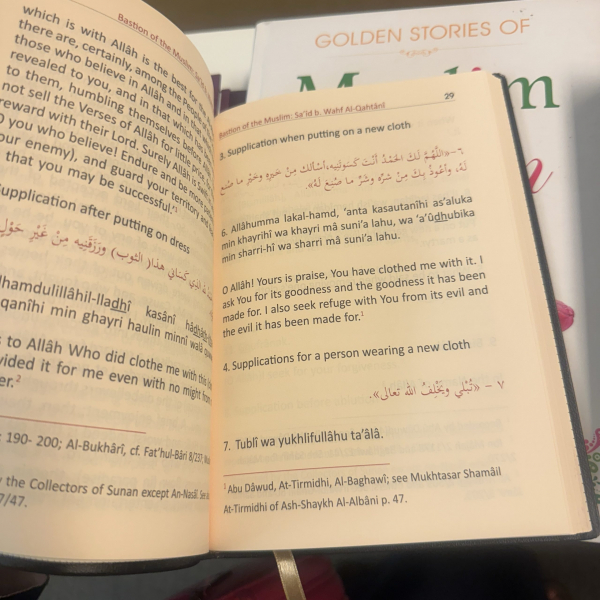 Bastion of the Muslim: Sa'îd
which is with Allâh is the best for the
there are, certainly, among the
those who believe in Allâh and in that
revealed to you, and in that which has
to them, humbling themselves before
not sell the Verses of Allâh for little price,
reward with their Lord. Surely, Allâh is Swift
O you who believe! Endure and be more
your enemy), and guard your territory
that you may be successful."¹
Supplication after putting on dress
كساني هذا( الثوب) ورزقنيه مِنْ غَيْرِ حَوْلٍ
hamdulillâhil-lladhî kasânî
qanîhi min ghayri haulin minnî walâ
s to Allâh Who did clothe me with this
vided it for me even with no might from
er.²
: 190- 200; Al-Bukhârî, cf. Fat'hul-Bâri 8/237,
y the Collectors of Sunan except An-Nasâî. See
7/47.
Bastion of the Muslim: Sa'îd b. Wahf Al-Qahtânî
29
3. Supplication when putting on a new cloth
٦-«اللَّهُمَّ لَكَ الْحَمْدُ أَنْتَ كَسَوْتَنِيهِ،أَسْأَلُكَ مِنْ خَيْرِهِ وَخَيْرِ مَا صُنِعَ
لَهُ، وَأَعُوذُ بِكَ مِنْ شَرِّهِ وَشَرِّ مَا صُنِعَ لَهُ».
6. Allâhumma lakal-hamd, 'anta kasautanîhi as'aluka
min khayrihî wa khayri mâ suni'a lahu, wa 'a'ûdhubika
min sharri-hî wa sharri mâ suni'a lahu.
O Allâh! Yours is praise, You have clothed me with it. I
ask You for its goodness and the goodness it has been
made for. I also seek refuge with You from its evil and
the evil it has been made for.¹
4. Supplications for a person wearing a new cloth
٧ - «تُبْلِي وَيُخْلِفُ اللهُ تَعَالَى».
7. Tublî wa yukhlifullâhu ta'âlâ.
¹ Abu Dâwud, At-Tirmidhi, Al-Baghawî; see Mukhtasar Shamâil
At-Tirmidhi of Ash-Shaykh Al-Albâni p. 47.
GOLDEN STORIES OF